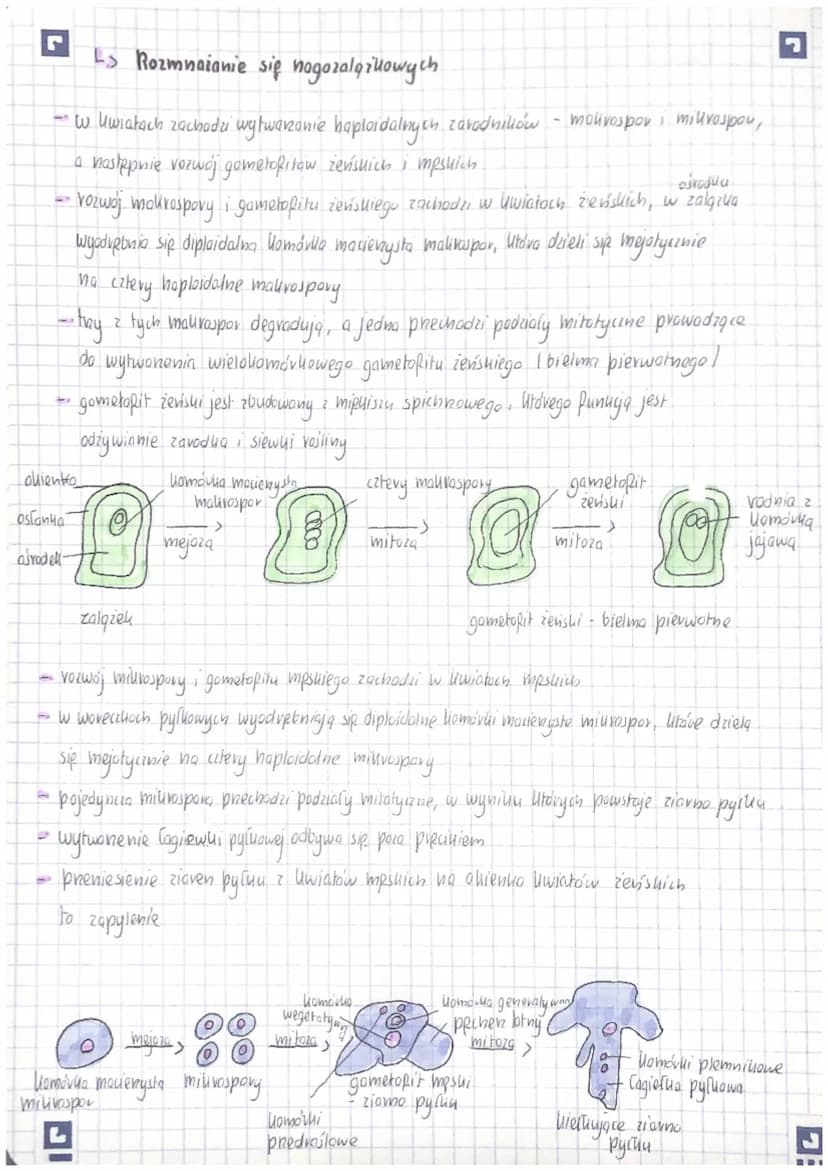 ↳ Rozmnażanie się nagozalążkowych
- w kwiatach zachodzi wytwarzanie haploidalnych zarodników - makrospor i mikrospor,
a następnie rozwój gametofitów żeńskich i męskich
- rozwój makrospory i gametofitu żeńskiego zachodzi w kwiatach żeńskich, w ośrodku zalążka
wyodrębnia się diploidalna komórka macierzysta makrospor, która dzieli się mejotycznie
na cztery haploidalne makrospory
- trzy z tych makrospor degradują, a jedna przechodzi podziały mitotyczne prowadzące
do wytworzenia wielokomórkowego gametofitu żeńskiego (bielma pierwotnego)
- gametofit żeński jest zbudowany z miękiszu spichrzowego, którego funkcją jest
odżywianie zarodka i siewki rośliny
okienko
osłonka
ośrodek
komórka macierzysta
makrospor
mejoza
cztery makrospory
mitoza
gametofit
żeński
mitoza
rodnia z
komórką
jajową
zalążek
gametofit żeński - bielmo pierwotne
- rozwój mikrospory i gametofitu męskiego zachodzi w kwiatach męskich
- w woreczkach pyłkowych wyodrębniają się diploidalne komórki macierzyste mikrospor, które dzielą
się mejotycznie na cztery haploidalne mikrospory
- pojedyncza mikrospora przechodzi podziały mitotyczne, w wyniku których powstaje ziarno pyłku
- wytworzenie łagiewki pyłkowej odbywa się poza pręcikiem
- przeniesienie ziaren pyłku z kwiatów męskich na okienko kwiatów żeńskich
to zapylenie
komórka macierzysta
mikrospor
mejoza
mikrospory
mitoza
komórka
wegetatywna
komórki
przedroślowe
gametofit męski
- ziarno pyłku
komórka generatywna
pęcherz lotny
mitoza
komórki plemnikowe
łagiewka pyłkowa
kiełkujące ziarno
pyłku